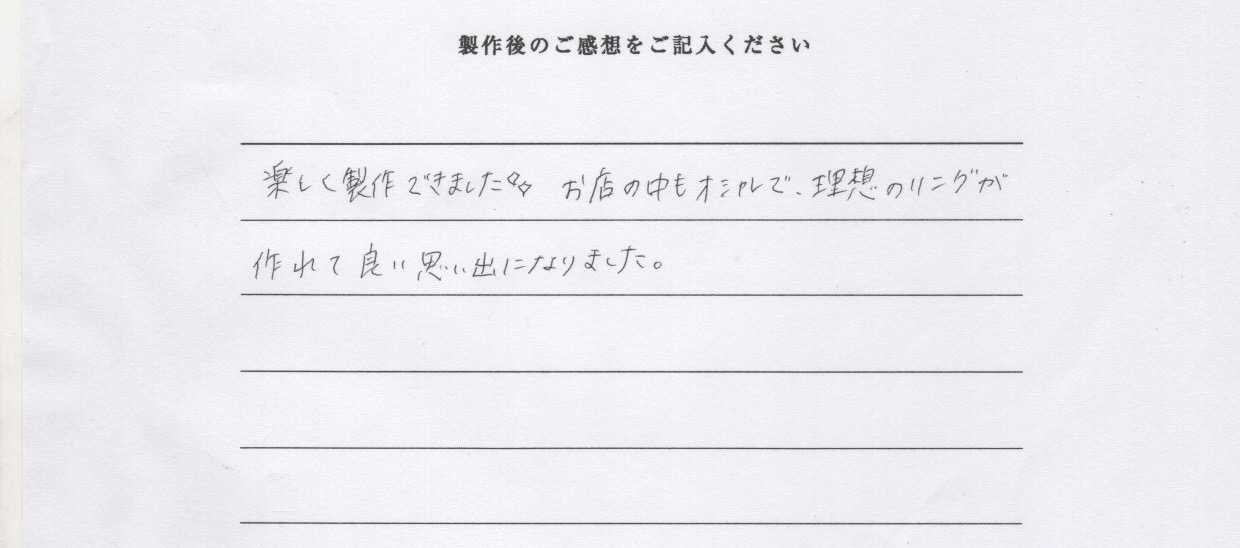 製作後のご感想をご記入ください
楽しく製作できました◇◇ お店の中もオシャレで、理想のリングが
作れて良い思い出になりました。